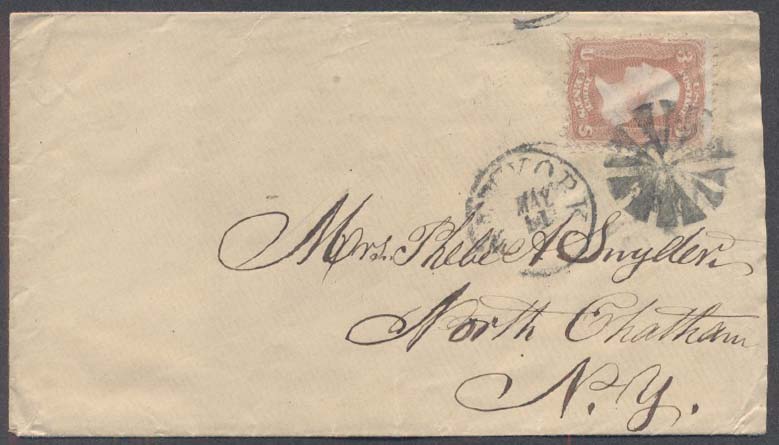 NEW YORK
MAY
11
Mrs. Phebe A Snyder.
North Chatham
N.Y.